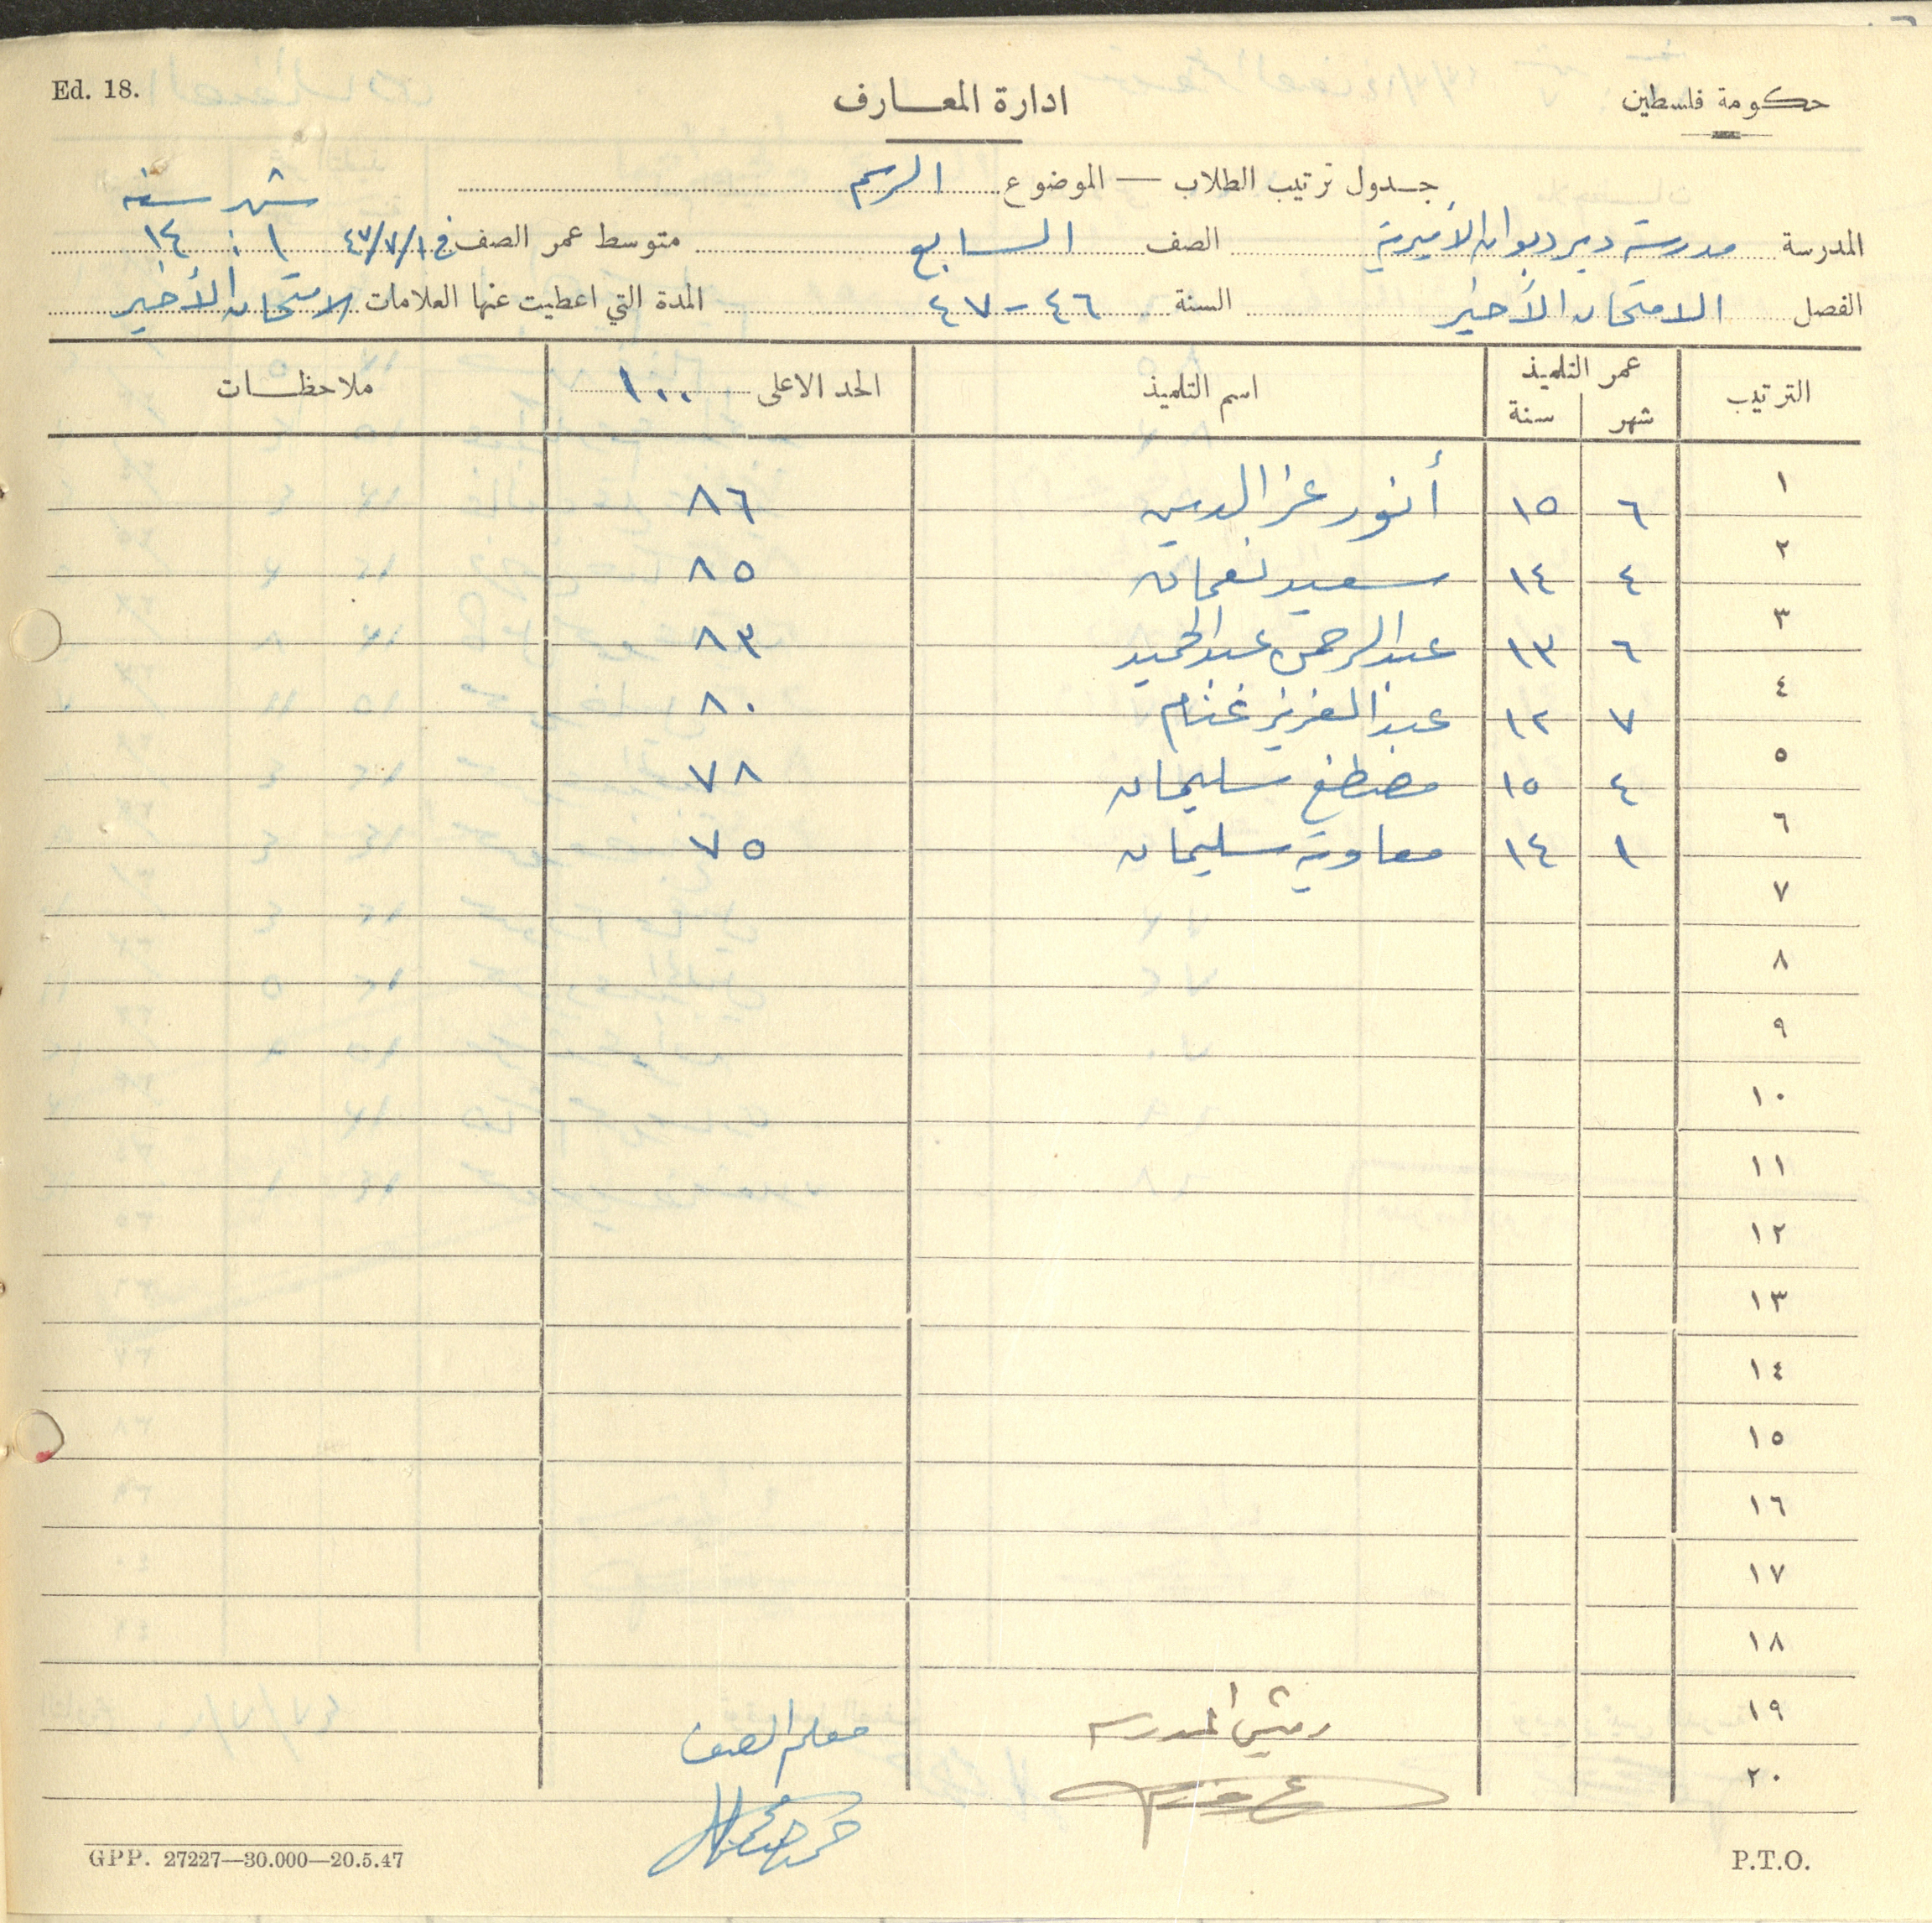 Ed. 18.
ادارة المعارف
حكومة فلسطين
جدول ترتيب الطلاب — الموضوع الرسم
شهر سنه
المدرسة مدرسة دير ديوان الأميرية الصف السابع متوسط عمر الصف في ٤٧/٧/١ ١ : ١٤
الفصل الامتحان الأخير السنة ٤٦-٤٧ المدة التي اعطيت عنها العلامات الامتحان الأخير
الترتيب عمر التلميذ شهر سنة اسم التلميذ الحد الاعلى ١٠٠ ملاحظات
١ ٦ ١٥ أنور عز الدين ٨٦
٢ ٤ ١٤ سعيد نعمان ٨٥
٣ ٦ ١٣ عبد الرحمن عبد الحميد ٨٣
٤ ٧ ١٢ عبد العزيز غنام ٨٠
٥ ٤ ١٥ مصطفى سليمان ٧٨
٦ ١ ١٤ معاوية سليمان ٧٥
٧
٨
٩
١٠
١١
١٢
١٣
١٤
١٥
١٦
١٧
١٨
١٩ رئيس المدرسة معلم الصف
٢٠
GPP. 27227—30.000—20.5.47
P.T.O.